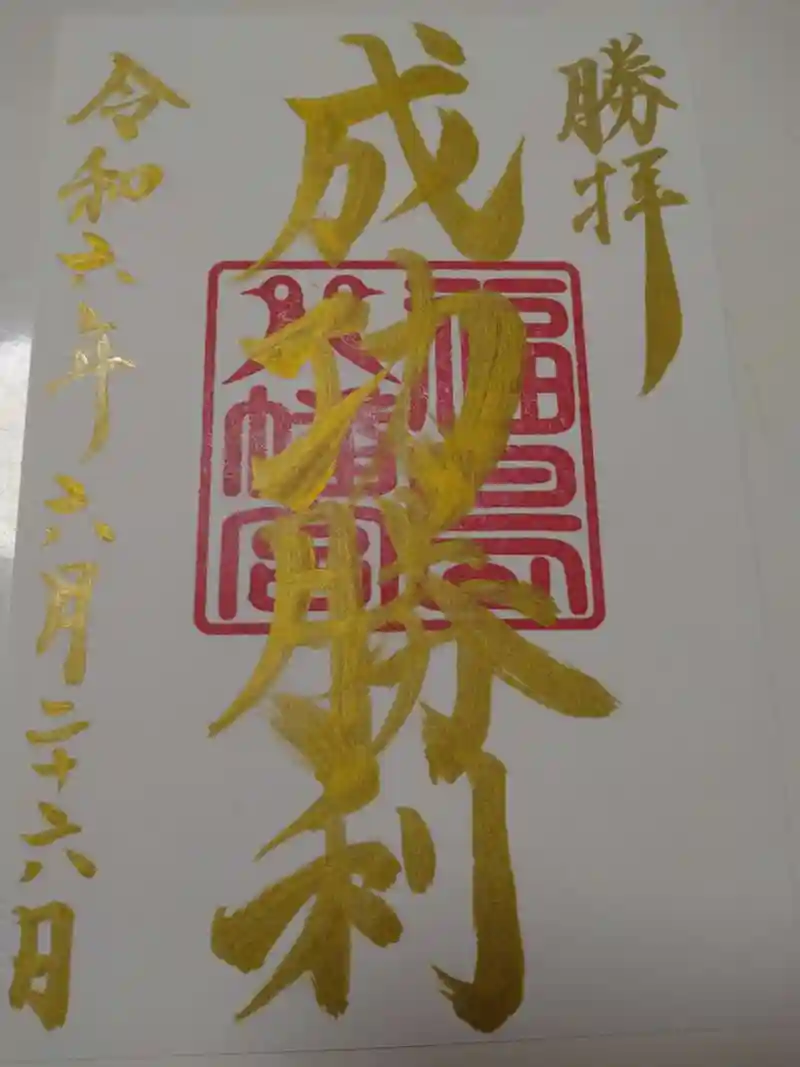 勝拝
成功勝利
福
八幡宮
令和六年六月二十六日